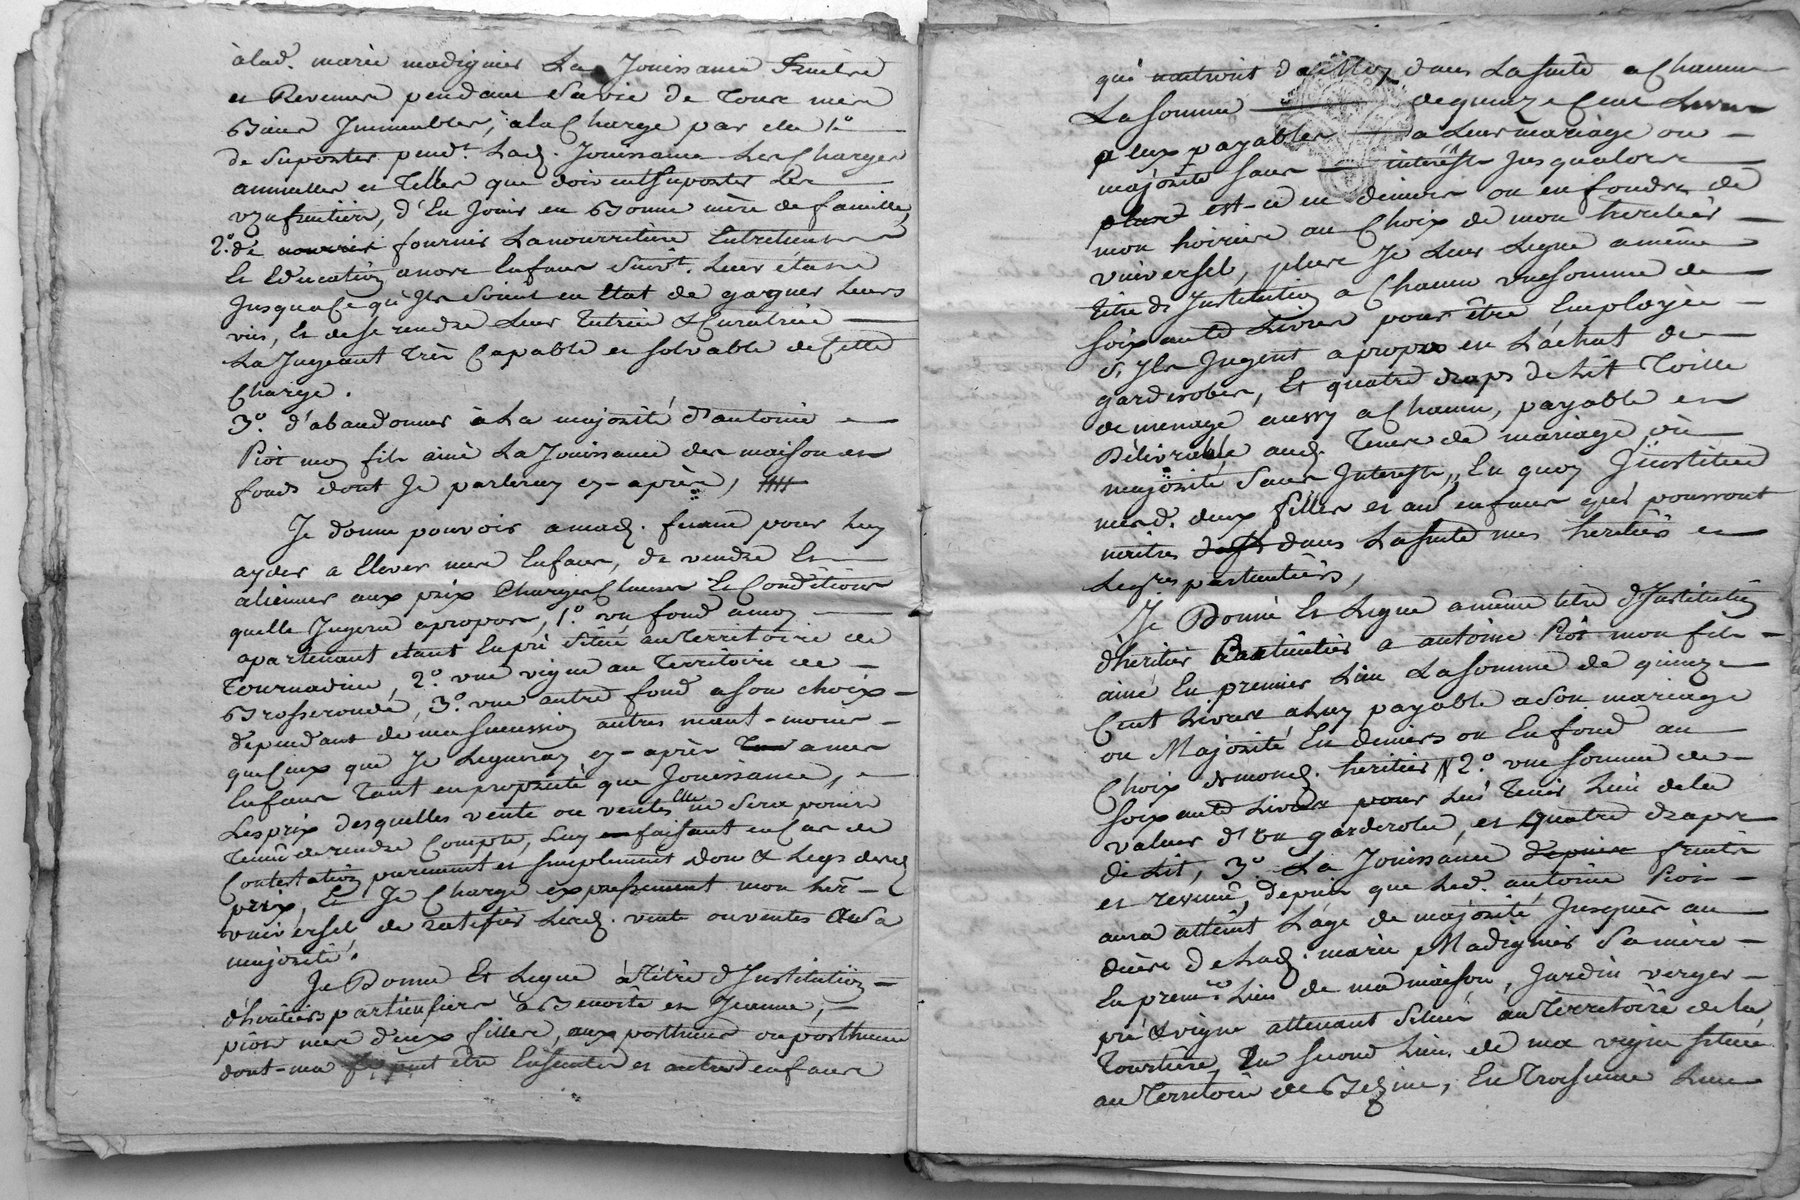 àlad. marie madignier La Jouissance Fruits
et Revenus pendant Sa vie de Tous mes
Biens Jmmeubles, àla Charge par elle 1º
de Suporter pend.t Lad. Jouissance Les Charges
annuelles et Telles que doivent Suporter Les
vzufruitiers, d'En Jouir en Bonne mère de famille,
2.º de fournir La nourriture Entretien
Et Education a nos Enfans Suiv.t Leur état
Jusqua Ce qu'Jls Soient en Etat de gagner Leurs
vies, Et de Se rendre Leur Tutrice & Curatrice
La Jugeant Très Capable et solvable de Cette
Charge.
3.º d'abandonner à La majorité d'antoine
Piot mon fils ainé La Jouissance des maison et
fonds dont Je parleray cy-après,
Je donne pouvoir a mad. femme pour Luy
ayder a Elever mes Enfans, de vendre Et
aliener aux prix Charges Clauses Et Conditions
quelle Jugera apropos, 1.º vn fond a moy
apartenant etant En pré Situé au Territoire de
Tournadine, 2.º vne vigne au Territoire de
Brosseronde, 3.º vne autre fond a Son choix
dependant de ma Succession autres neant-moins
que Ceux que Je Legueray cy-après a mes
Enfans Tant en proprieté que Jouissance,
Les prix desquelles vente ou ventes elle ne Sera point
Tenüe de rendre Compte, Luy faisant en Cas de
Contestation purement et simplement don & Legs desd.
prix, Et Je Charge expressement mon her.
vniversel de ratifier Lesd. vente ou ventes a Sa
majorité.
Je Donne Et Legue à Titre d'Institution
d'héritiers particuliers à Benoite et Jeanne,
piot mes deux filles, aux posthumes ou posthume
dont ma peut être Enceinte et autres enfans
qui naitront dans La Suite a Chacun
La Somme de quinze Cent Livres
a eux payables a Leur mariage ou
majorité Sans intérêts Jusqualors
est-ce en deniers ou en fonds de
mon hoirie au Choix de mon heritier
vniversel, plus Je Leur Legue a même
titre d'Institution a Chacun vne Somme de
soixante Livres pour être Employée
S'Jls Jugent apropos en L'achat de
garderobes, Et quatre draps de Lit Toille
de menage aussy a Chacun, payable et
Délivrable aud. Tems de mariage ou
majorité Sans Interests, En quoy J'institue
mesd. deux filles et aud. enfans qui pourront
naitre dans La Suite mes heritiers et
Leg.res particuliers,
Je Donne Et Legue a même titre d'Institution
d'heritier Particulier a antoine Piot mon fils
ainé En premier Lieu La Somme de quinze
Cent Livres a Luy payable a Son mariage
ou Majorité En deniers ou En fond au
Choix de mond. heritier 2.º vne Somme de
soixante Livres pour Lui Tenir Lieu de la
valeur d'Un garderobe, et quatre draps
de Lit, 3.º La Jouissance fruits
et revenus, depuis que Led. antoine Piot
aura atteint L'age de majorité Jusques au
décès de Lad. marie Madignier Sa mère
En prem.r Lieu de ma maison, Jardin verger
pré & vigne attenant Situés au Territoire de la
Tourtière, En Second Lieu de ma vigne située
au Territoire de En Troisieme Lieu